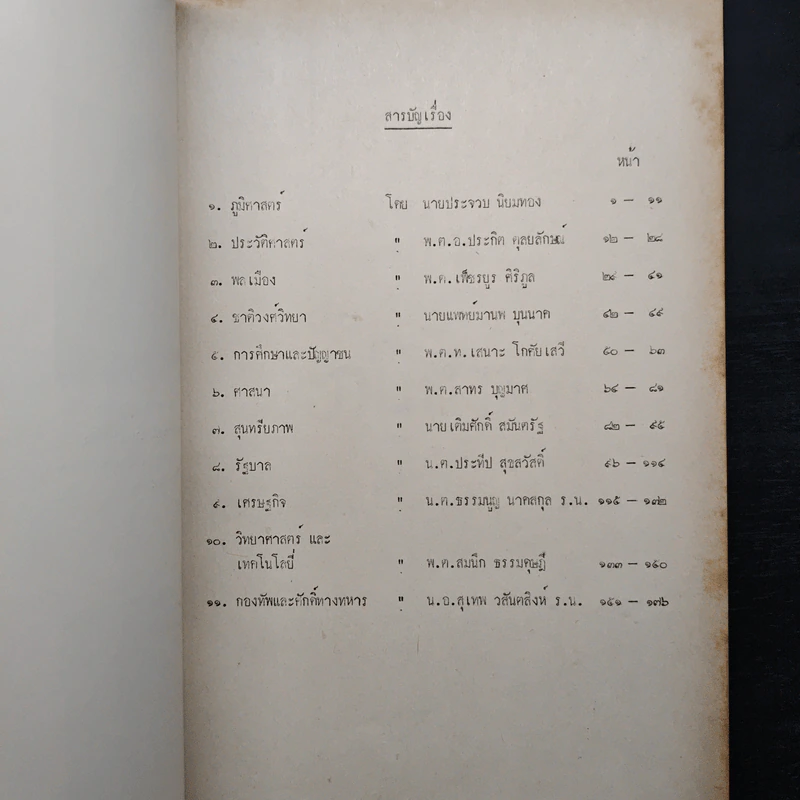 สารบัญเรื่อง
หน้า
๑. ภูมิศาสตร์ โดย นายประจวบ นิยมทอง ๑ — ๑๑
๒. ประวัติศาสตร์ " พ.ต.อ.ประกิต ตุลยลักษณ์ ๑๒ — ๒๘
๓. พลเมือง " พ.ต.เพ็ชรบูร ศิริภูล ๒๙ — ๔๑
๔. ชาติวงศ์วิทยา " นายแพทย์มานพ บุนนาค ๔๒ — ๔๙
๕. การศึกษาและปัญญาชน " พ.ต.ท.เสนาะ โกศัยเสวี ๕๐ — ๖๓
๖. ศาสนา " พ.ต.สาทร บุญมาศ ๖๔ — ๘๑
๗. สุนทรียภาพ " นายเติมศักดิ์ สมันตรัฐ ๘๒ — ๙๕
๘. รัฐบาล " น.ต.ประทีป สุขสวัสดิ์ ๙๖ — ๑๑๔
๙. เศรษฐกิจ " น.ต.ธรรมนูญ นาคสกุล ร.น. ๑๑๕ — ๑๓๒
๑๐. วิทยาศาสตร์ และ
เทคโนโลยี่ " พ.ต.สมนึก ธรรมดุษฎี ๑๓๓ — ๑๕๐
๑๑. กองทัพและศักดิ์ทางทหาร " น.อ.สุเทพ วสันตสิงห์ ร.น. ๑๕๑ — ๑๗๖